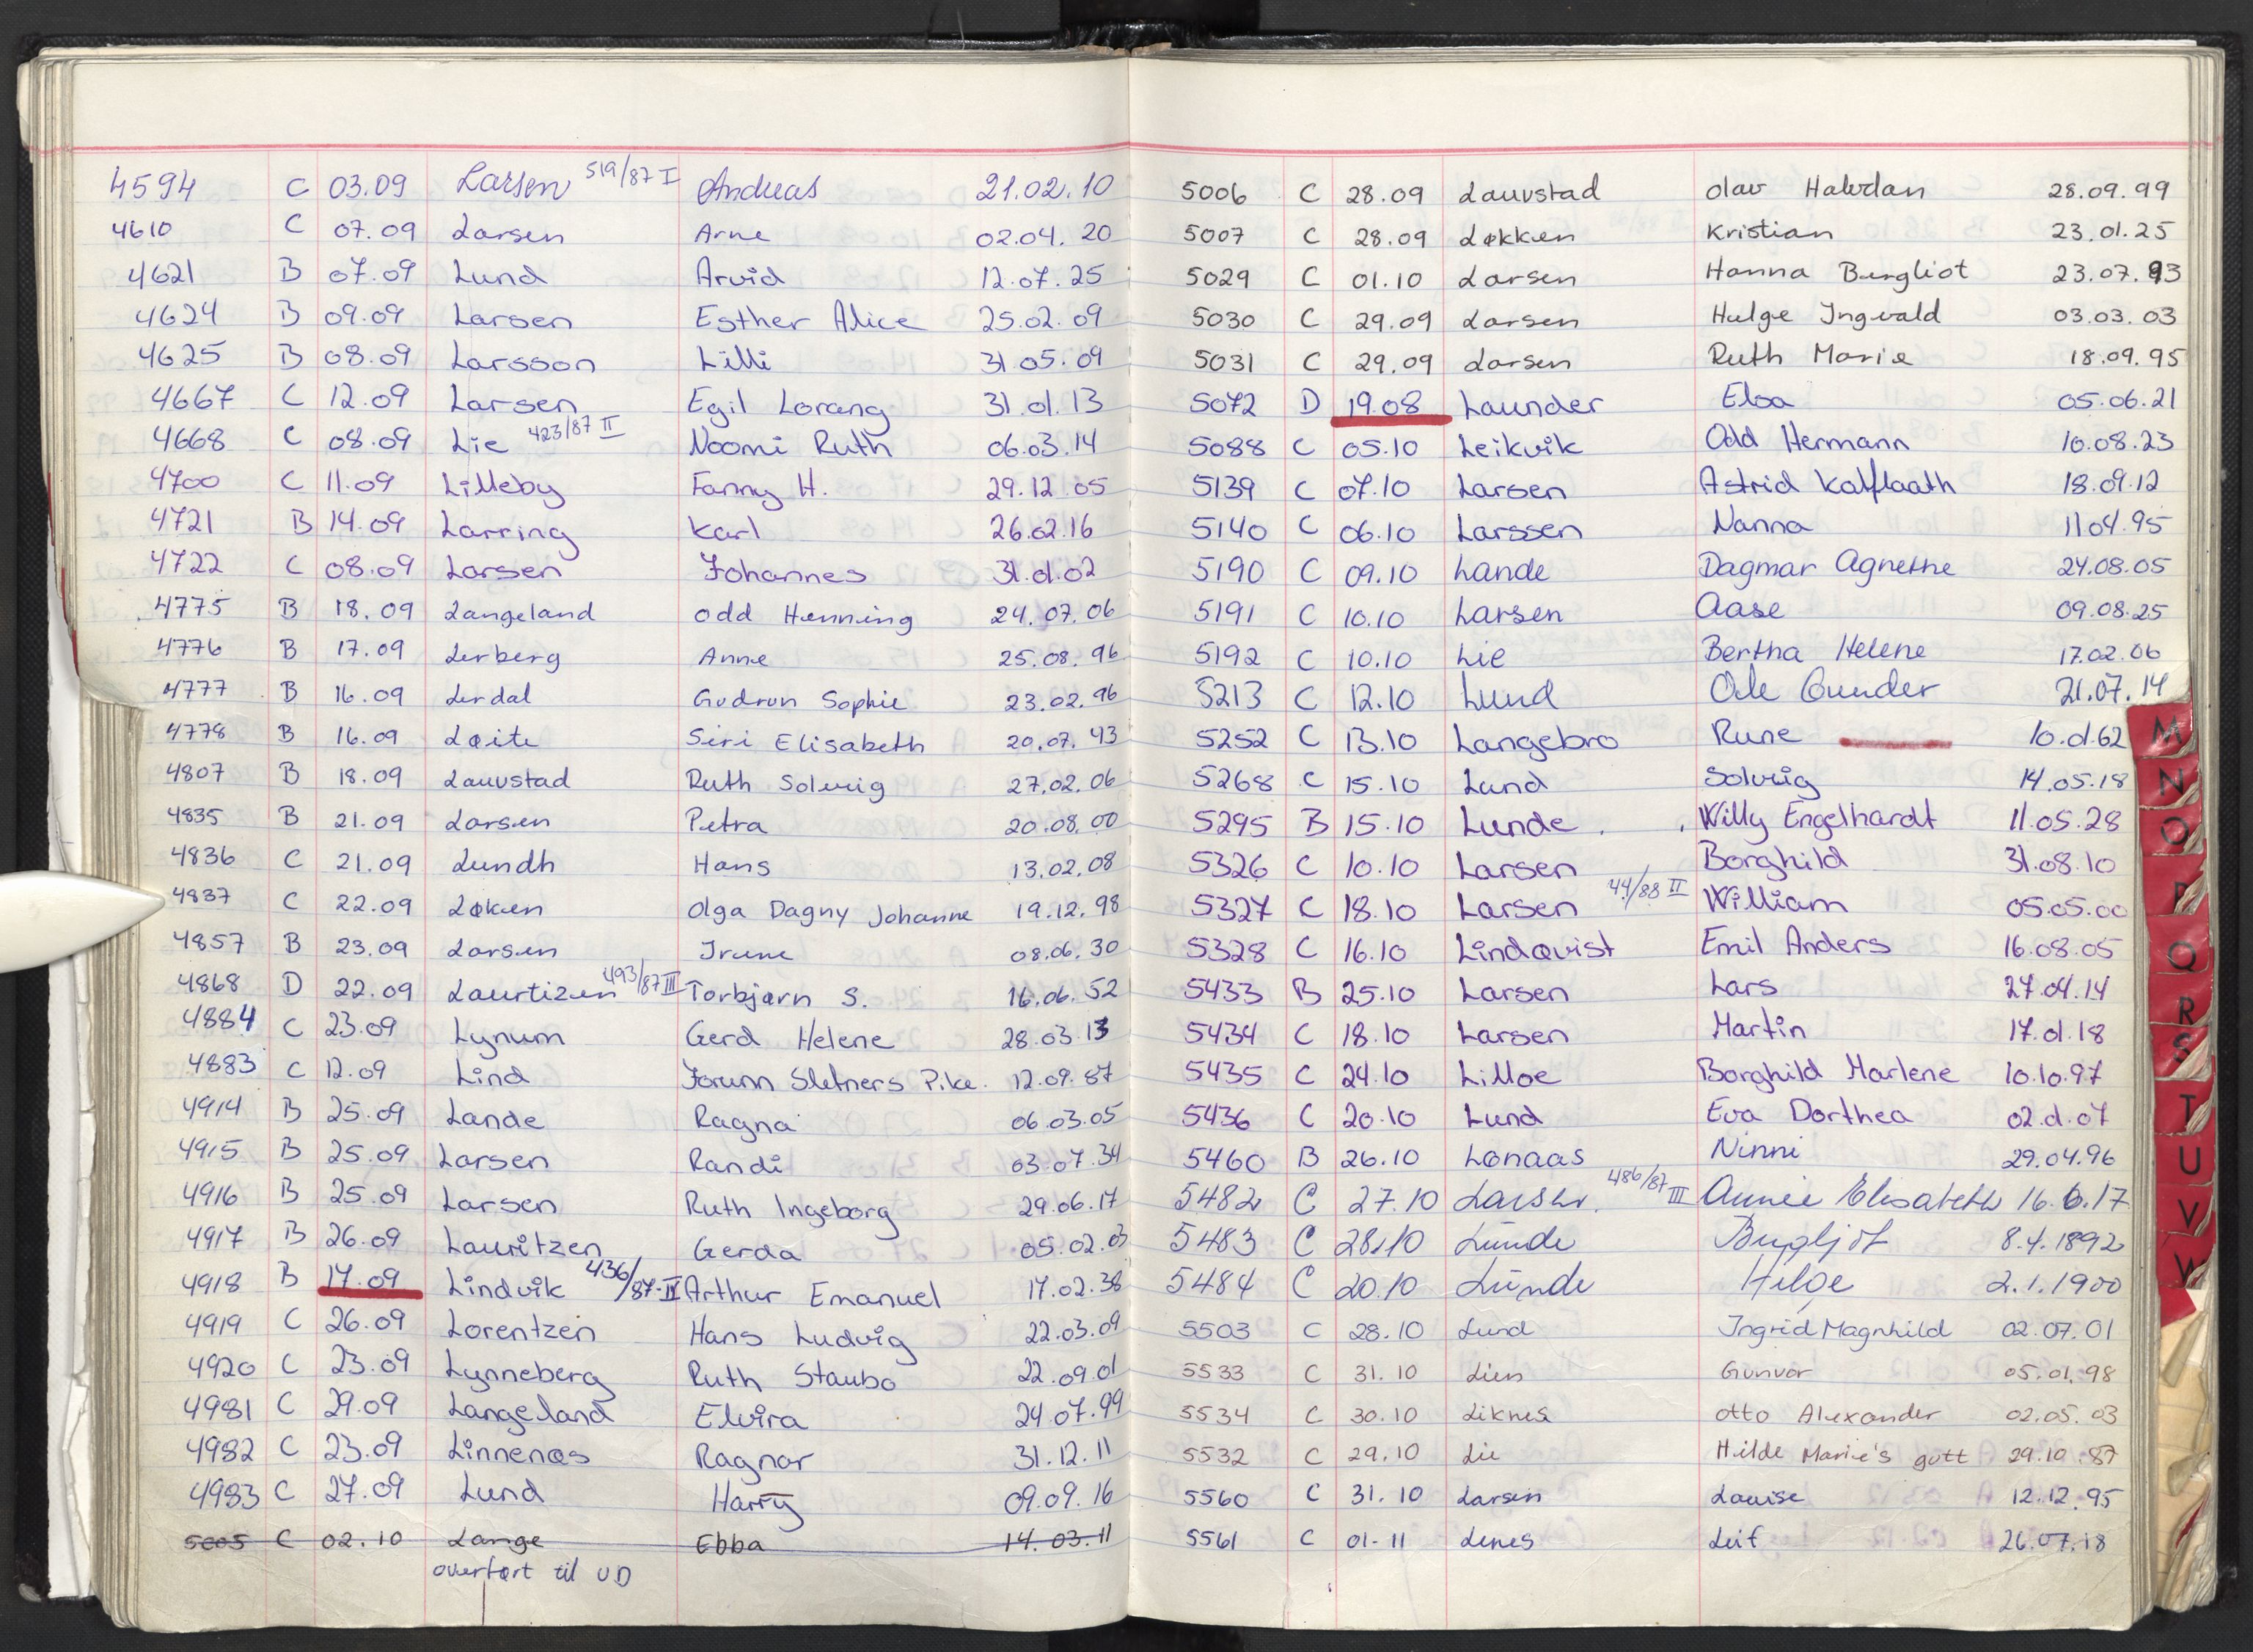 4594 C 03.09 Larsen 519/87 I Andreas 21.02.10
4610 C 07.09 Larsen Arne 02.04.20
4621 B 07.09 Lund Arvid 12.07.25
4624 B 09.09 Larsen Esther Alice 25.02.09
4625 B 08.09 Larsson Lilli 31.05.09
4667 C 12.09 Larsen Egil Lorang 31.01.13
4668 C 08.09 Lie 423/87 II Noomi Ruth 06.03.14
4700 C 11.09 Lilleby Fanny H. 29.12.05
4721 B 14.09 Larring Karl 26.02.16
4722 C 08.09 Larsen Johannes 31.01.02
4775 B 18.09 Langeland Odd Henning 24.07.06
4776 B 17.09 Lerberg Anne 25.08.96
4777 B 16.09 Lerdal Gudrun Sophie 23.02.96
4778 B 16.09 Løite Siri Elisabeth 20.07.43
4807 B 18.09 Lauvstad Ruth Solveig 27.02.06
4835 B 21.09 Larsen Petra 20.08.00
4836 C 21.09 Lundh Hans 13.02.08
4837 C 22.09 Løken Olga Dagny Johanne 19.12.98
4857 B 23.09 Larsen Irene 08.06.30
4868 D 22.09 Laurtizen 493/87 III Torbjørn S. 16.06.52
4884 C 23.09 Lynum Gerd Helene 28.03.13
4883 C 12.09 Lind Jorunn Sletners Pike. 12.09.87
4914 B 25.09 Lande Ragna 06.03.05
4915 B 25.09 Larsen Randi 03.07.34
4916 B 25.09 Larsen Ruth Ingeborg 29.06.17
4917 B 26.09 Lauritzen Gerda 05.02.03
4918 B 17.09 Lindvik 436/87-II Arthur Emanuel 17.02.38
4919 C 26.09 Lorentzen Hans Ludvig 22.03.09
4920 C 23.09 Lynneberg Ruth Staubo 22.09.01
4981 C 29.09 Langeland Elvira 24.07.99
4982 C 23.09 Linnenæs Ragnar 31.12.11
4983 C 27.09 Lund Harry 09.09.16
5005 C 02.10 Lange Ebba 14.03.11
overført til UD
5006 C 28.09 Lauvstad Olav Halvdan 28.09.99
5007 C 28.09 Løkken Kristian 23.01.25
5029 C 01.10 Larsen Hanna Bergliot 23.07.93
5030 C 29.09 Larsen Helge Ingvald 03.03.03
5031 C 29.09 Larsen Ruth Marie 18.09.95
5072 D 19.08 Launder Elsa 05.06.21
5088 C 05.10 Leikvik Odd Hermann 10.08.23
5139 C 07.10 Larsen Astrid Kalflaath 18.09.12
5140 C 06.10 Larssen Nanna 11.04.95
5190 C 09.10 Lande Dagmar Agnethe 24.08.05
5191 C 10.10 Larsen Aase 09.08.25
5192 C 10.10 Lie Bertha Helene 17.02.06
5213 C 12.10 Lund Ole Gunder 21.07.14
5252 C 13.10 Langebro Rune 10.01.62
5268 C 15.10 Lund Solveig 14.05.18
5295 B 15.10 Lunde Willy Engelhardt 11.05.28
5326 C 10.10 Larsen Borghild 31.08.10
5327 C 18.10 Larsen 44/88 II William 05.05.00
5328 C 16.10 Lindqvist Emil Anders 16.08.05
5433 B 25.10 Larsen Lars 27.04.14
5434 C 18.10 Larsen Martin 17.01.18
5435 C 24.10 Lilloe Borghild Marlene 10.10.97
5436 C 20.10 Lund Eva Dorthea 02.01.07
5460 B 26.10 Lønaas Ninni 29.04.96
5482 C 27.10 Larsen. 486/87 III Annie Elisabeth 16.6.17
5483 C 28.10 Lunde Bergljot 8.4.1892
5484 C 20.10 Lunde Helge 2.1.1900
5503 C 28.10 Lund Ingrid Magnhild 02.07.01
5533 C 31.10 Lien Gunvor 05.01.98
5534 C 30.10 Liknes Otto Alexander 02.05.03
5532 C 29.10 Lie Hilde Marie's gutt 29.10.87
5560 C 31.10 Larsen Louise 12.12.95
5561 C 01-11 Lenes Leif 26.07.18
M
N
O
P
Q
R
S
T
U
V
W